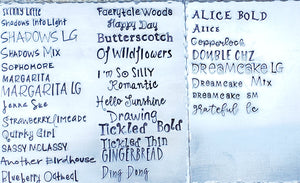 Skinny Latte
Shadows Into Light
SHADOWS LG
SHADOWS MIX
SOPHOMORE
MARGARITA
MARGARITA LG
Janna Sue
Strawberry Limeade
Quirky Girl
SASSY MCLASSY
Another Birdhouse
Blueberry Oatmeal
Fairytale Woods
Happy Day
Butterscotch
Of Wildflowers
I'm So SILLY
Romantic
Hello Sunshine
Drawing
Tickled Bold
Tickled Thin
GINGERBREAD
Ding Dong
ALICE BOLD
Alice
Copperlock
DOUBLE CHZ
DREAMCAKE LG
DREAMCAKE MIX
DREAMCAKE SM
grateful lc